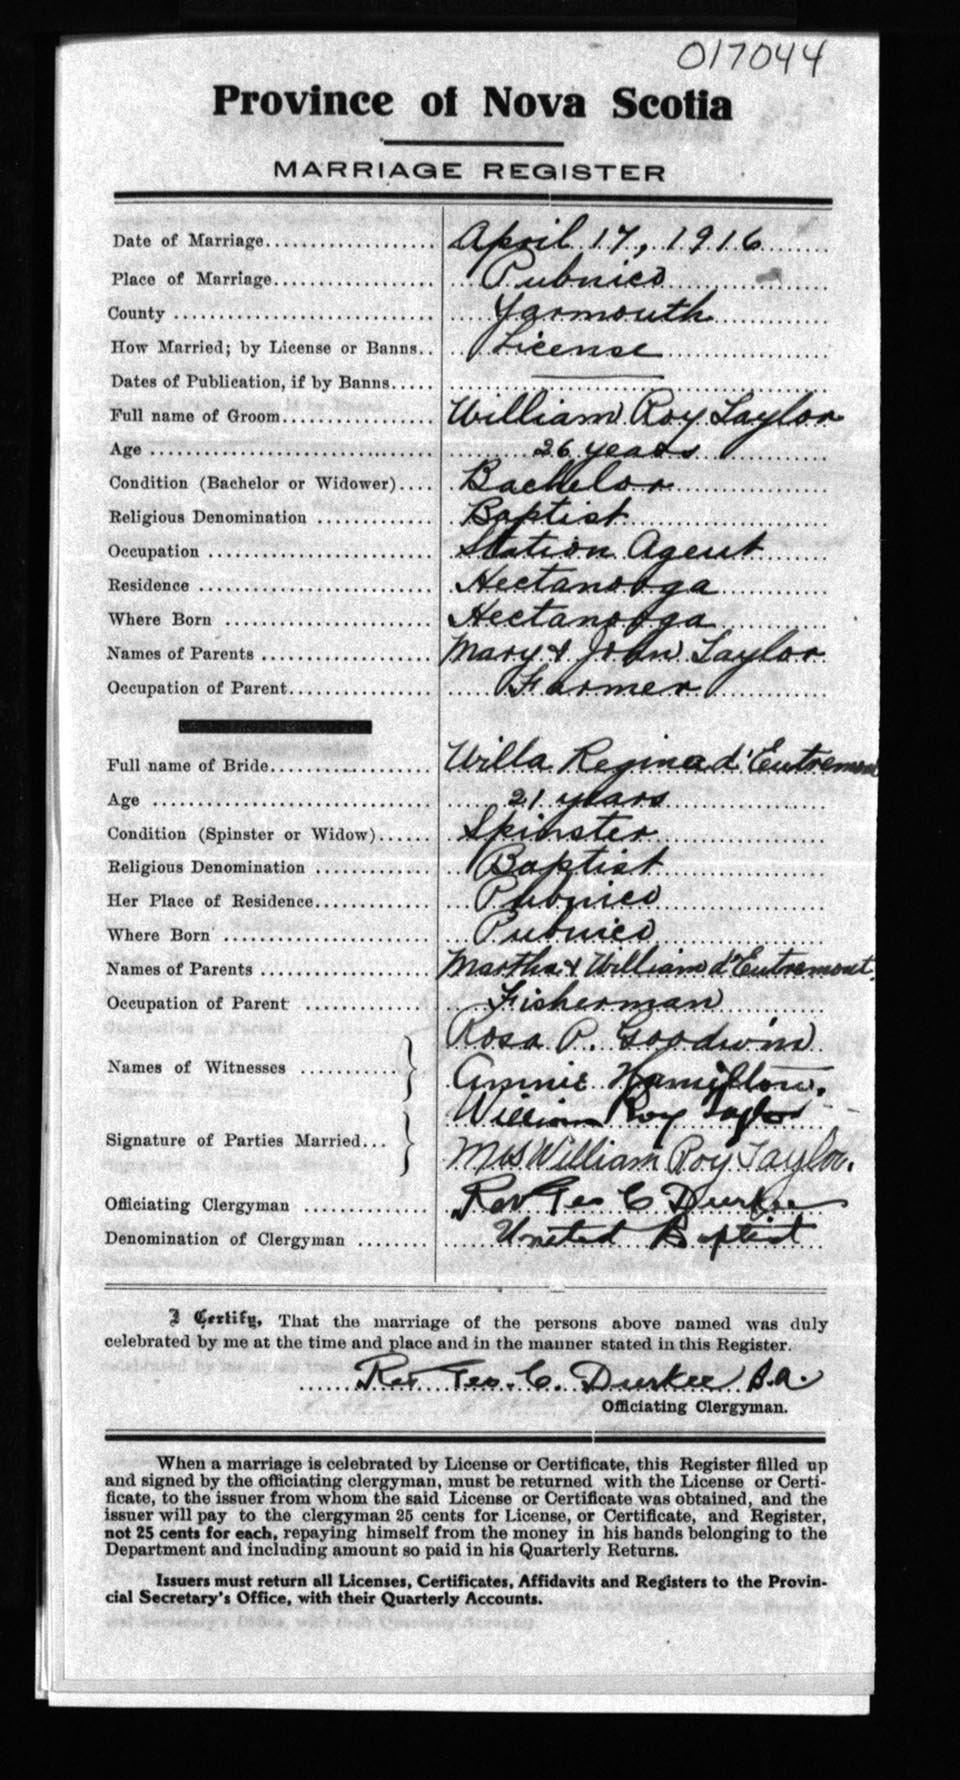 017044
Province of Nova Scotia
MARRIAGE REGISTER
Date of Marriage.................. April 17, 1916
Place of Marriage.................. Pubnico
County .................. Yarmouth
How Married; by License or Banns.. License
Dates of Publication, if by Banns..... ———
Full name of Groom.................. William Roy Taylor
Age .................. 26 years
Condition (Bachelor or Widower).... Bachelor
Religious Denomination .............. Baptist
Occupation .................. Station Agent
Residence .................. Hectanooga
Where Born .................. Hectanooga
Names of Parents .................. Mary & John Taylor
Occupation of Parent.................. Farmer
Full name of Bride.................. Willa Regina d'Entremont
Age .................. 21 years
Condition (Spinster or Widow)...... Spinster
Religious Denomination .............. Baptist
Her Place of Residence.............. Pubnico
Where Born .................. Pubnico
Names of Parents .................. Martha & William d'Entremont.
Occupation of Parent .............. Fisherman
Rosa P. Goodwin
Names of Witnesses ........... Annie Hamilton.
William Roy Taylor
Signature of Parties Married...
Mrs William Roy Taylor.
Officiating Clergyman .............. Rev Geo C Durkee
Denomination of Clergyman ........ United Baptist
I Certify, That the marriage of the persons above named was duly
celebrated by me at the time and place and in the manner stated in this Register.
Rev Geo. C. Durkee B.A.
Officiating Clergyman.
When a marriage is celebrated by License or Certificate, this Register filled up
and signed by the officiating clergyman, must be returned with the License or Certi-
ficate, to the issuer from whom the said License or Certificate was obtained, and the
issuer will pay to the clergyman 25 cents for License, or Certificate, and Register,
not 25 cents for each, repaying himself from the money in his hands belonging to the
Department and including amount so paid in his Quarterly Returns.
Issuers must return all Licenses, Certificates, Affidavits and Registers to the Provin-
cial Secretary's Office, with their Quarterly Accounts.